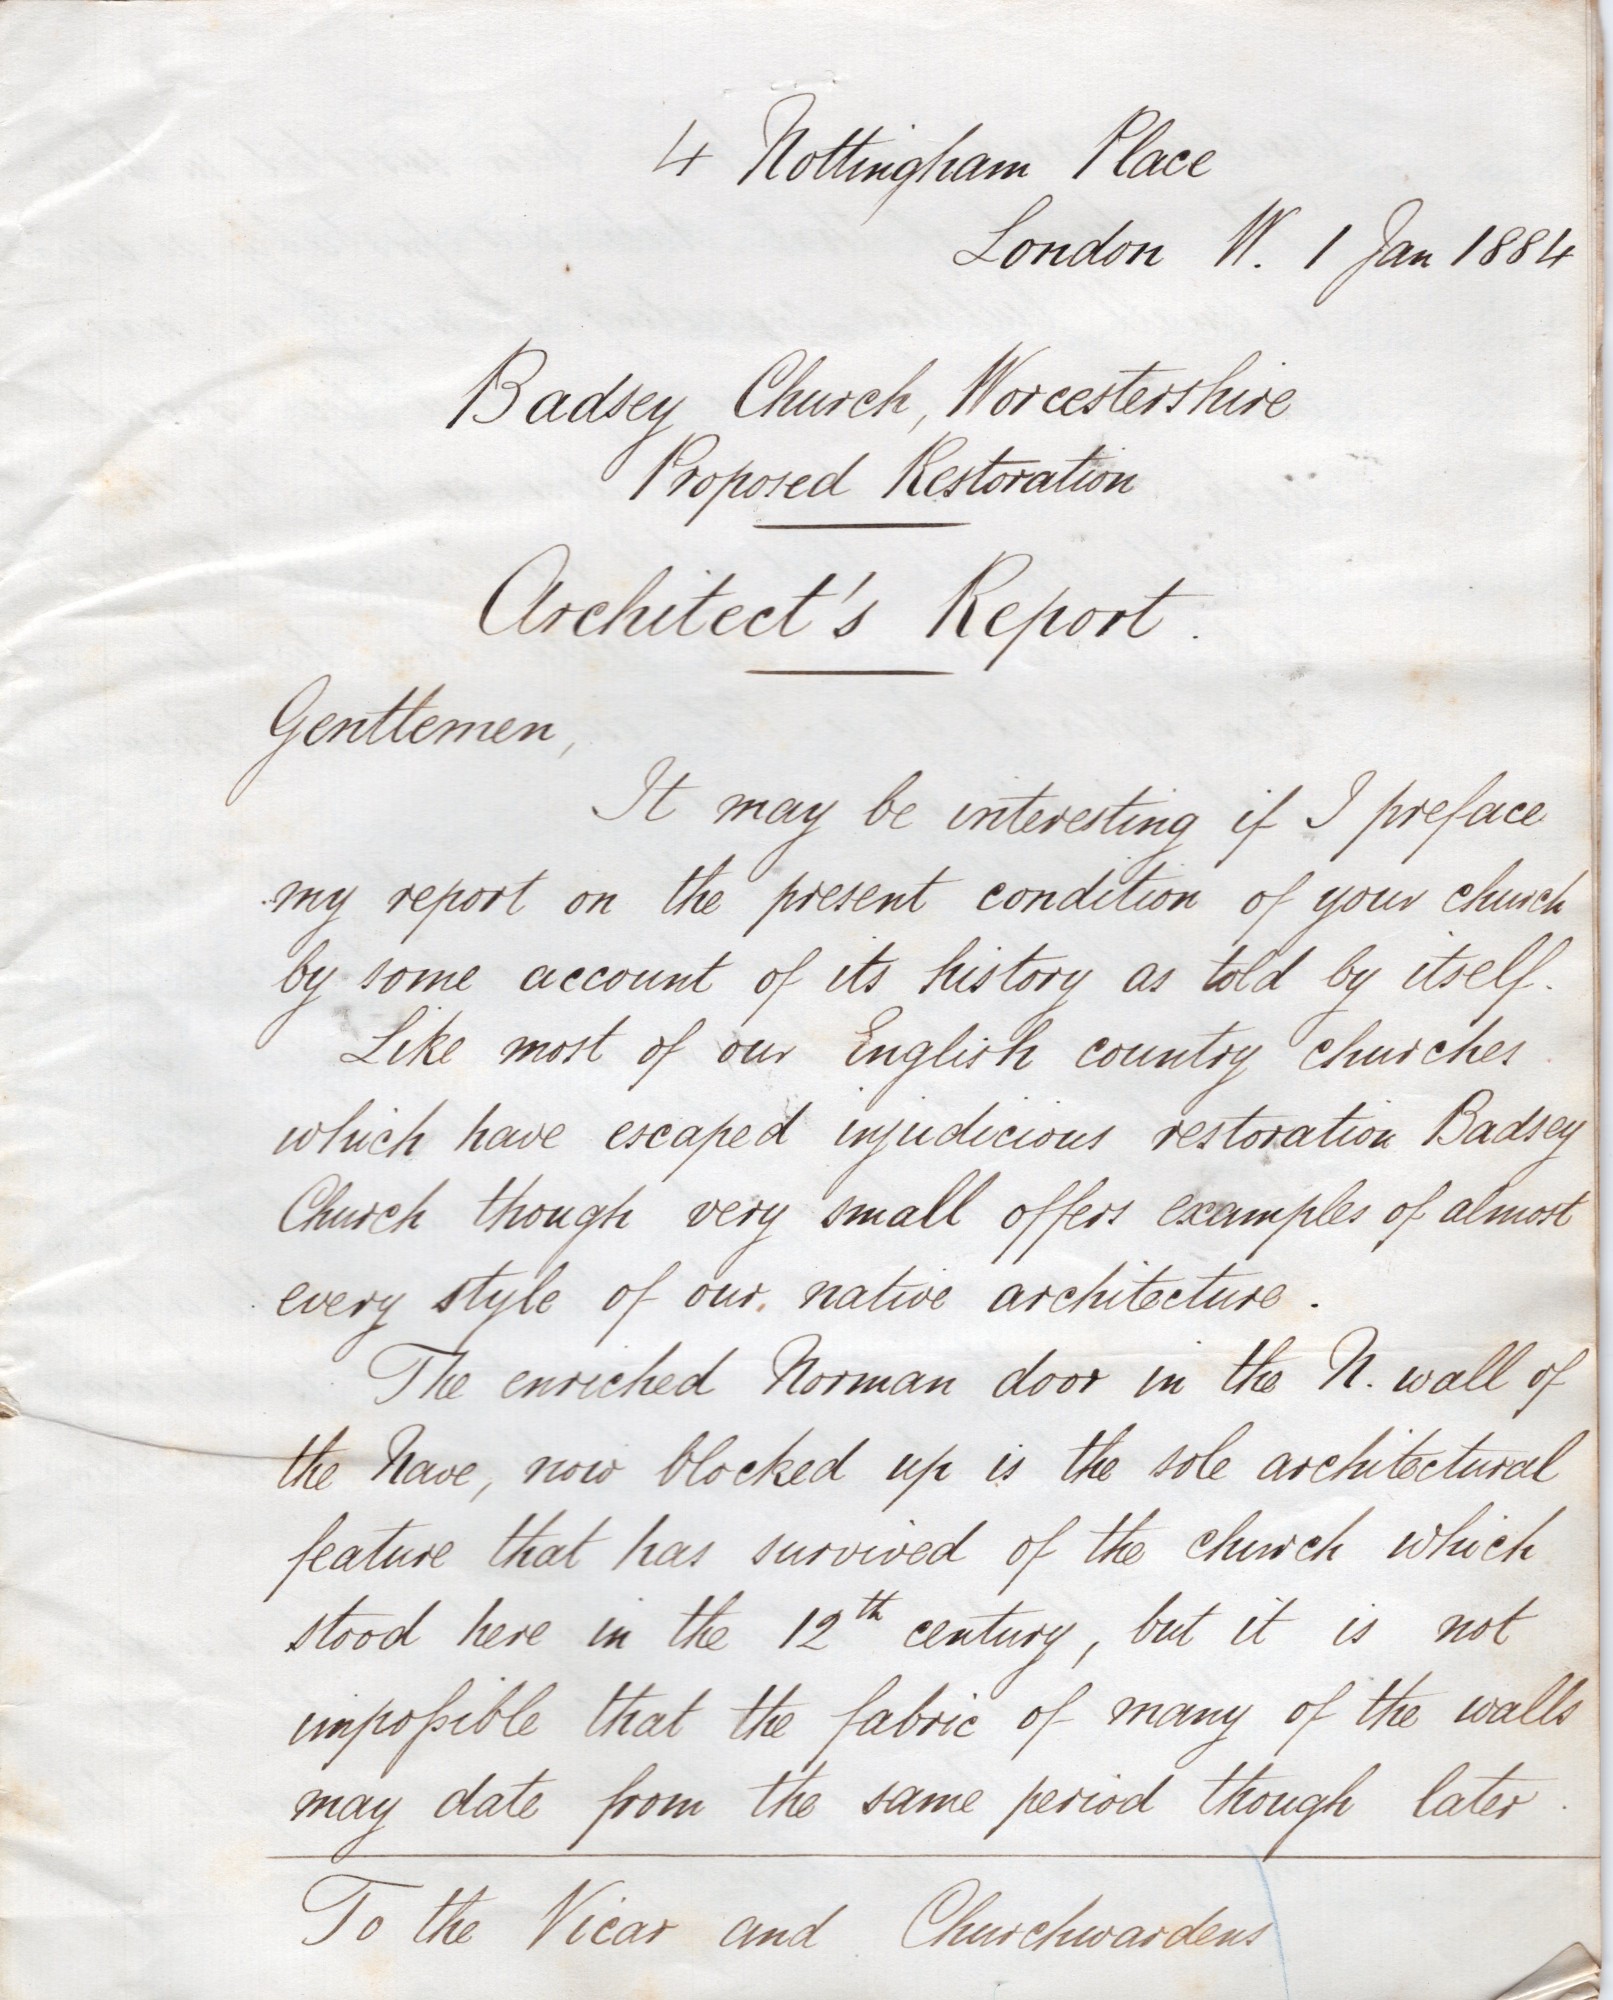 4 Nottingham Place
London W. 1 Jan 1884
Badsey Church, Worcestershire
Proposed Restoration
Architect's Report.
Gentlemen,
It may be interesting if I preface
my report on the present condition of your church
by some account of its history as told by itself.
Like most of our English country churches
which have escaped injudicious restoration Badsey
Church though very small offers examples of almost
every style of our native architecture.
The enriched Norman door in the N. wall of
the Nave, now blocked up is the sole architectural
feature that has survived of the church which
stood here in the 12th century, but it is not
impoſsible that the fabric of many of the walls
may date from the same period though later
To the Vicar and Churchwardens